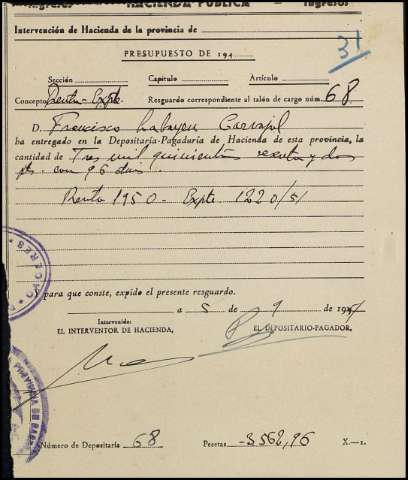 Ingresos HACIENDA PÚBLICA Ingresos
Intervención de Hacienda de la provincia de
31
PRESUPUESTO DE 194
Sección Capítulo Artículo
Concepto Renta-Expte. Resguardo correspondiente al talón de cargo núm. 68
D. Francisco Labayen Carvajal
ha entregado en la Depositaría-Pagaduría de Hacienda de esta provincia, la
cantidad de Tres mil quinientas sesenta y dos
pts. con 96 ctms.
Renta 1950 - Expte. 1220/51
Y para que conste, expido el presente resguardo.
a 5 de 9 de 1951
Intervine:
EL INTERVENTOR DE HACIENDA, EL DEPOSITARIO-PAGADOR,
Número de Depositaría 68 Pesetas 3562,96 X.-1.